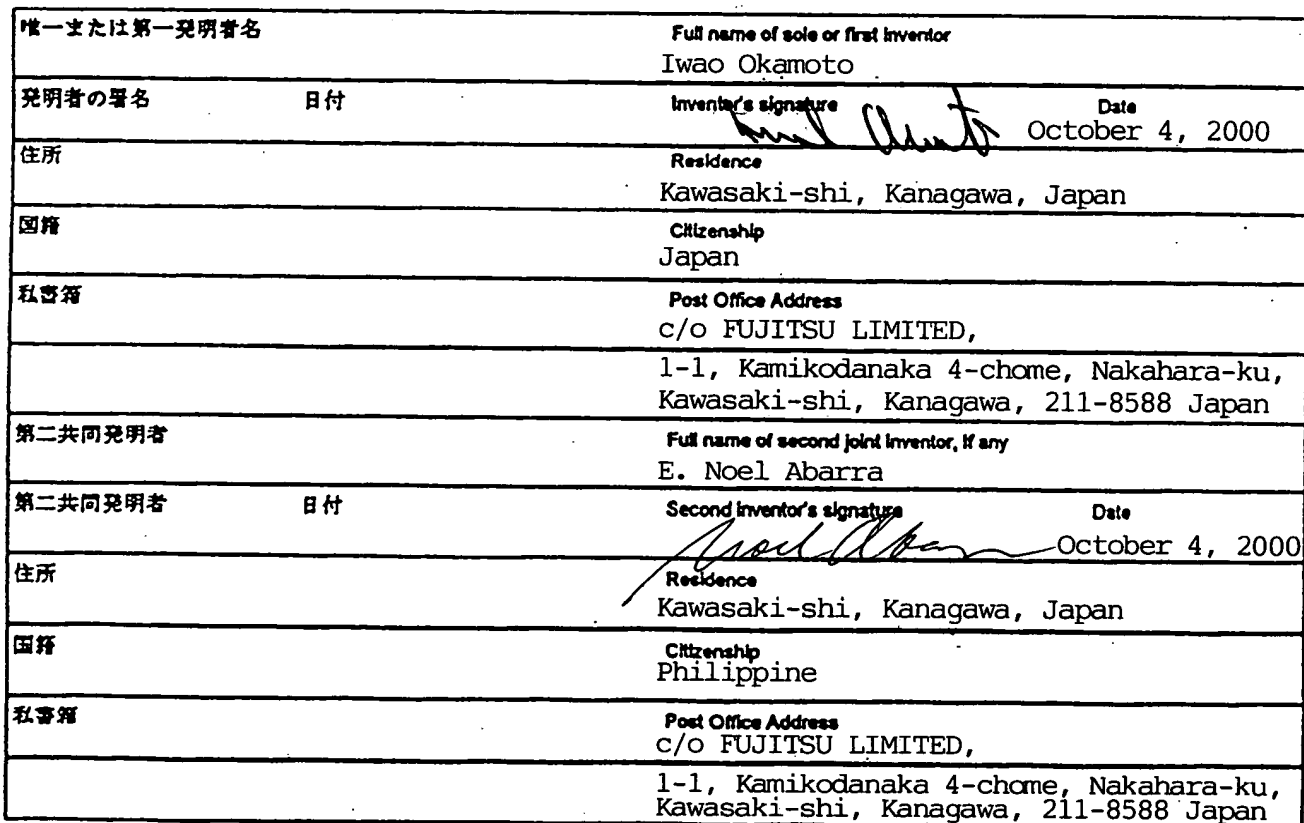 唯一または第一発明者名
Full name of sole or first inventor
Iwao Okamoto
発明者の署名 日付
Inventor's signature Date
October 4, 2000
住所
Residence
Kawasaki-shi, Kanagawa, Japan
国籍
Citizenship
Japan
私書箱
Post Office Address
c/o FUJITSU LIMITED,
1-1, Kamikodanaka 4-chome, Nakahara-ku,
Kawasaki-shi, Kanagawa, 211-8588 Japan
第二共同発明者
Full name of second joint inventor, if any
E. Noel Abarra
第二共同発明者 日付
Second inventor's signature Date
October 4, 2000
住所
Residence
Kawasaki-shi, Kanagawa, Japan
国籍
Citizenship
Philippine
私書箱
Post Office Address
c/o FUJITSU LIMITED,
1-1, Kamikodanaka 4-chome, Nakahara-ku,
Kawasaki-shi, Kanagawa, 211-8588 Japan